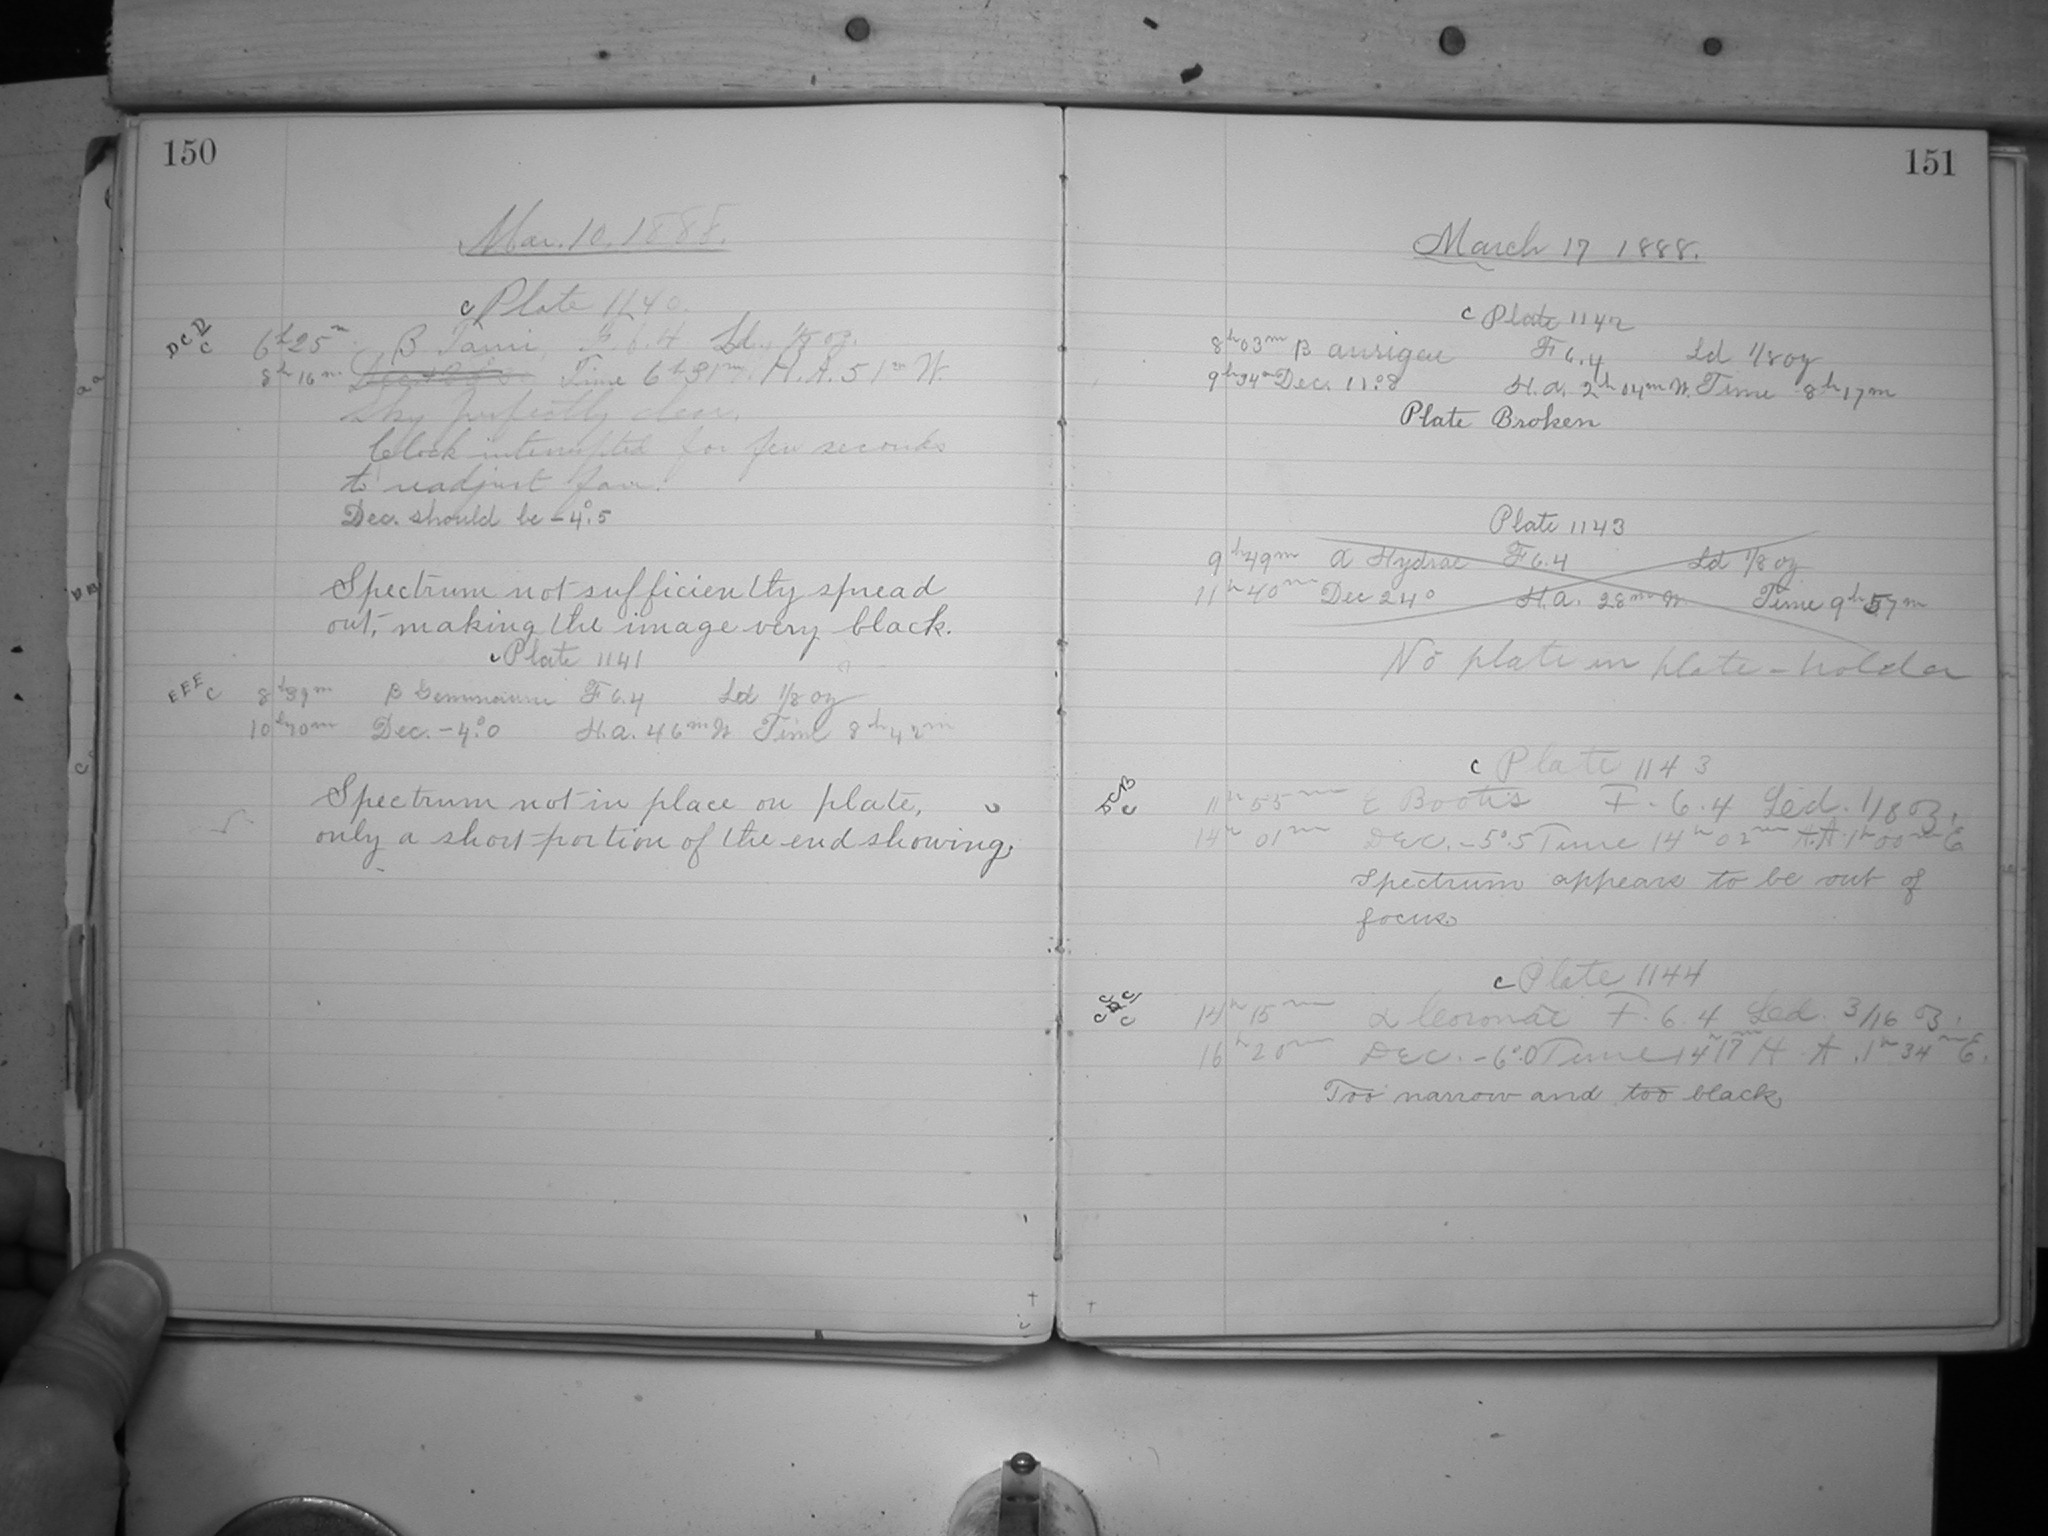 150
Mar. 10, 1888.
c Plate 1140.
D C D C
6h 25m β Tauri, F. 6.4 Ld. 1/8 oz.
8h 16m Time 6h 31m. H.A. 51m W.
Sky perfectly clear.
Clock interrupted for few seconds
to readjust fan.
Dec. should be -4°.5
Spectrum not sufficiently spread
out, making the image very black.
c Plate 1141
E E E C
8h 39m β Geminorum F 6.4 Ld 1/8 oz
10h 40m Dec. -4°.0 H.a. 46m W Time 8h 42m
Spectrum not in place on plate,
only a short portion of the end showing.
151
March 17 1888.
c Plate 1142
8h 03m β aurigae F 6.4 Ld 1/8 oz
9h 34m Dec. 11°.8 H.a. 2h 04m W. Time 8h 17m
Plate Broken
Plate 1143
9h 49m α Hydrae F 6.4 Ld 1/8 oz
11h 40m Dec 24° H.a. 28m W. Time 9h 57m
No plate in plate-holder
c Plate 1143
D C B C
11h 55m ε Bootis F. 6.4 Led. 1/8 oz.
14h 01m Dec. -5°.5 Time 14h 02m H.A. 1h 00m E
Spectrum appears to be out of
focus
c Plate 1144
14h 15m α Coronae F. 6.4 Led. 3/16 oz.
16h 20m Dec. -6°.0 Time 14h 17m H.A. 1h 34m E.
Too narrow and too black